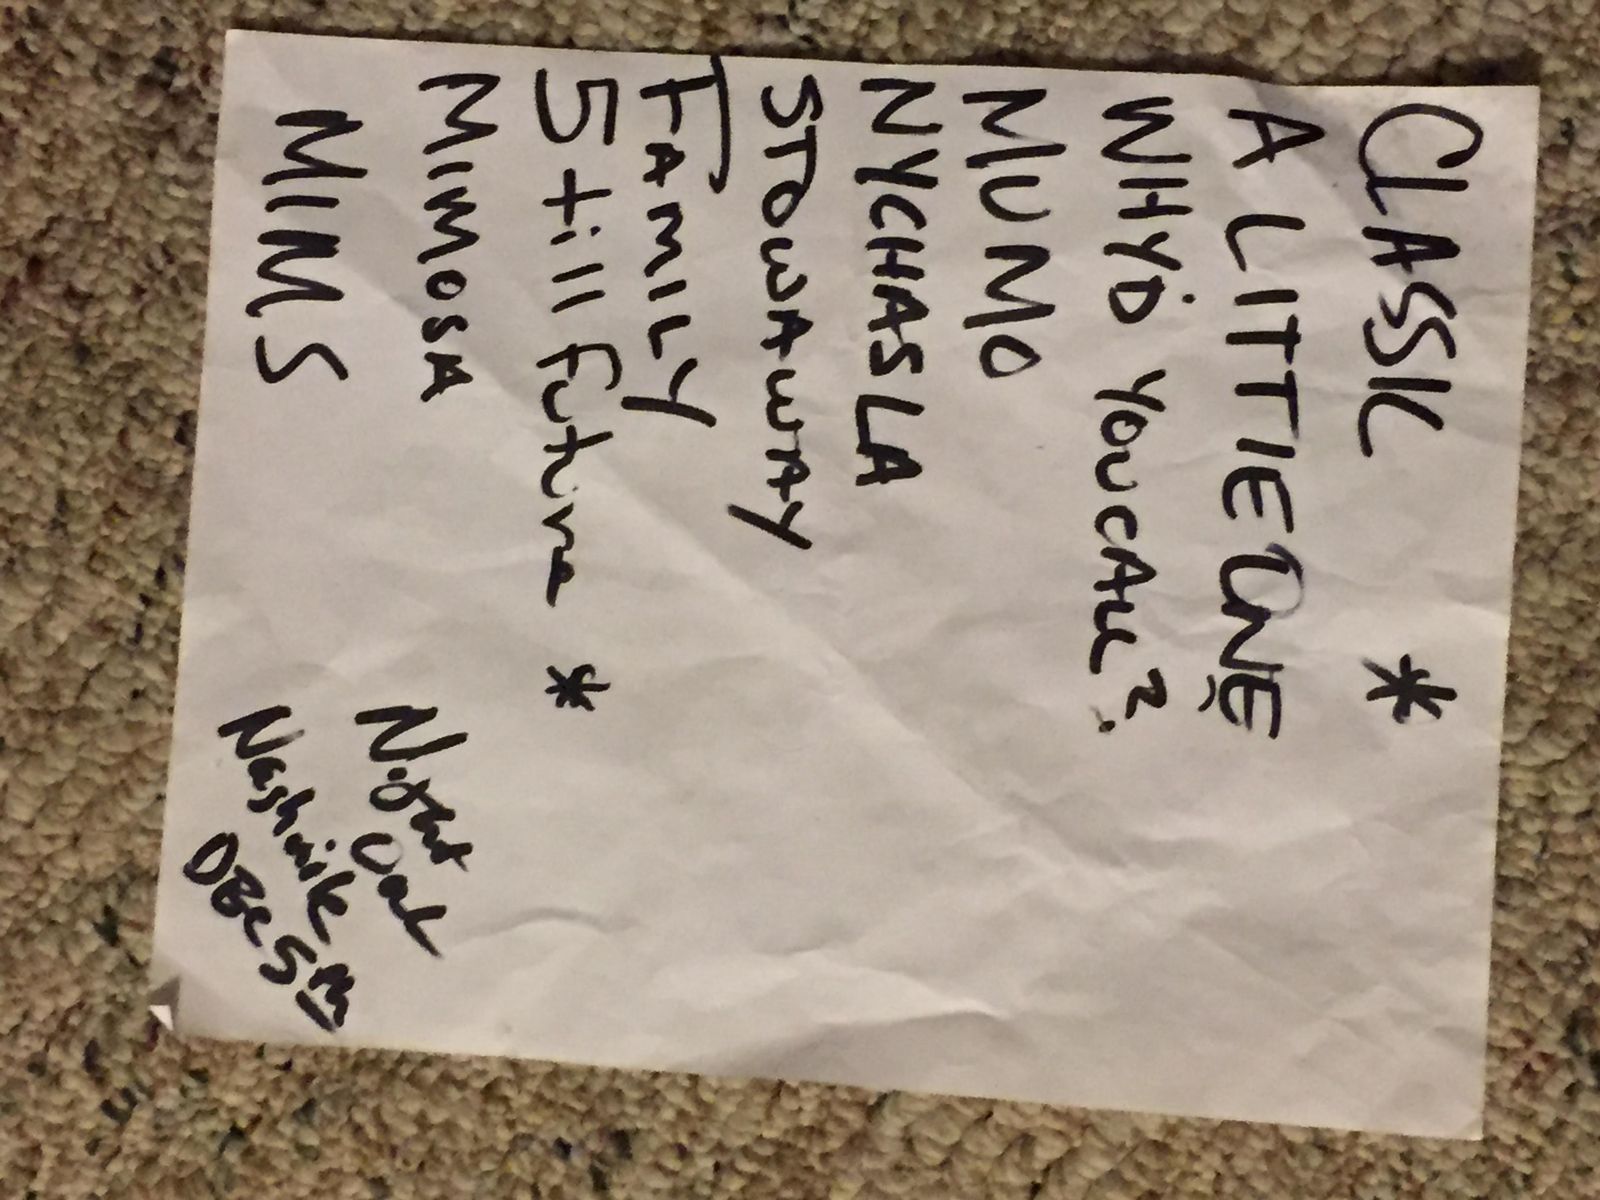 CLASSIC *
A LITTIE ONE
WHY'D YOU CALL?
MUMO
NYCHASLA
STOWAWAY
FAMILY
Still future *
MIMOSA
MIMS
Night Owl
Nashville